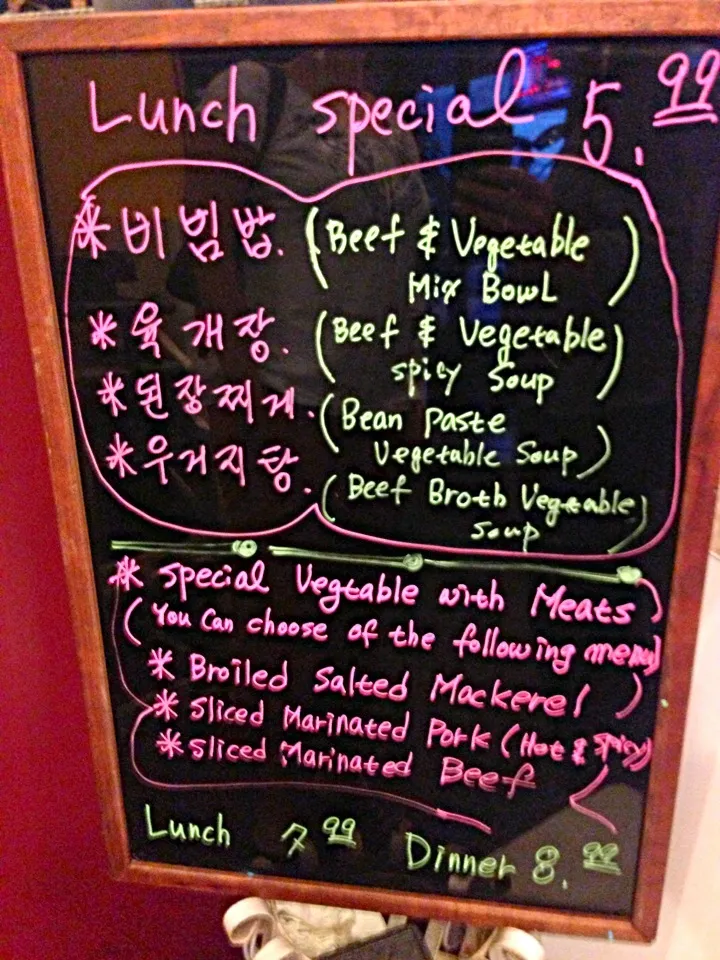 Lunch special 5.99
* 비빔밥. (Beef & Vegetable
Mix Bowl)
* 육개장. (Beef & Vegetable
spicy Soup)
* 된장찌게. (Bean Paste
Vegetable Soup)
* 우거지탕. (Beef Broth Vegetable
Soup)
* Special Vegtable with Meats
(You Can choose of the following menu)
* Broiled Salted Mackerel
* Sliced Marinated Pork (Hot & Spicy)
* Sliced Marinated Beef
Lunch 7 99 Dinner 8.99